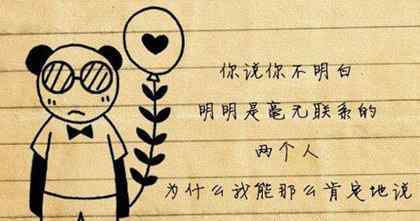 你说你不明白
明明是毫无联系的
两个人
为什么我能那么肯定地说